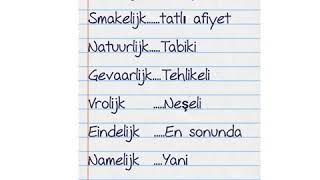 Smakelijk.....tatlı afiyet
Natuurlijk....Tabiki
Gevaarlijk....Tehlikeli
Vrolijk .....Neşeli
Eindelijk .....En sonunda
Namelijk ....Yani